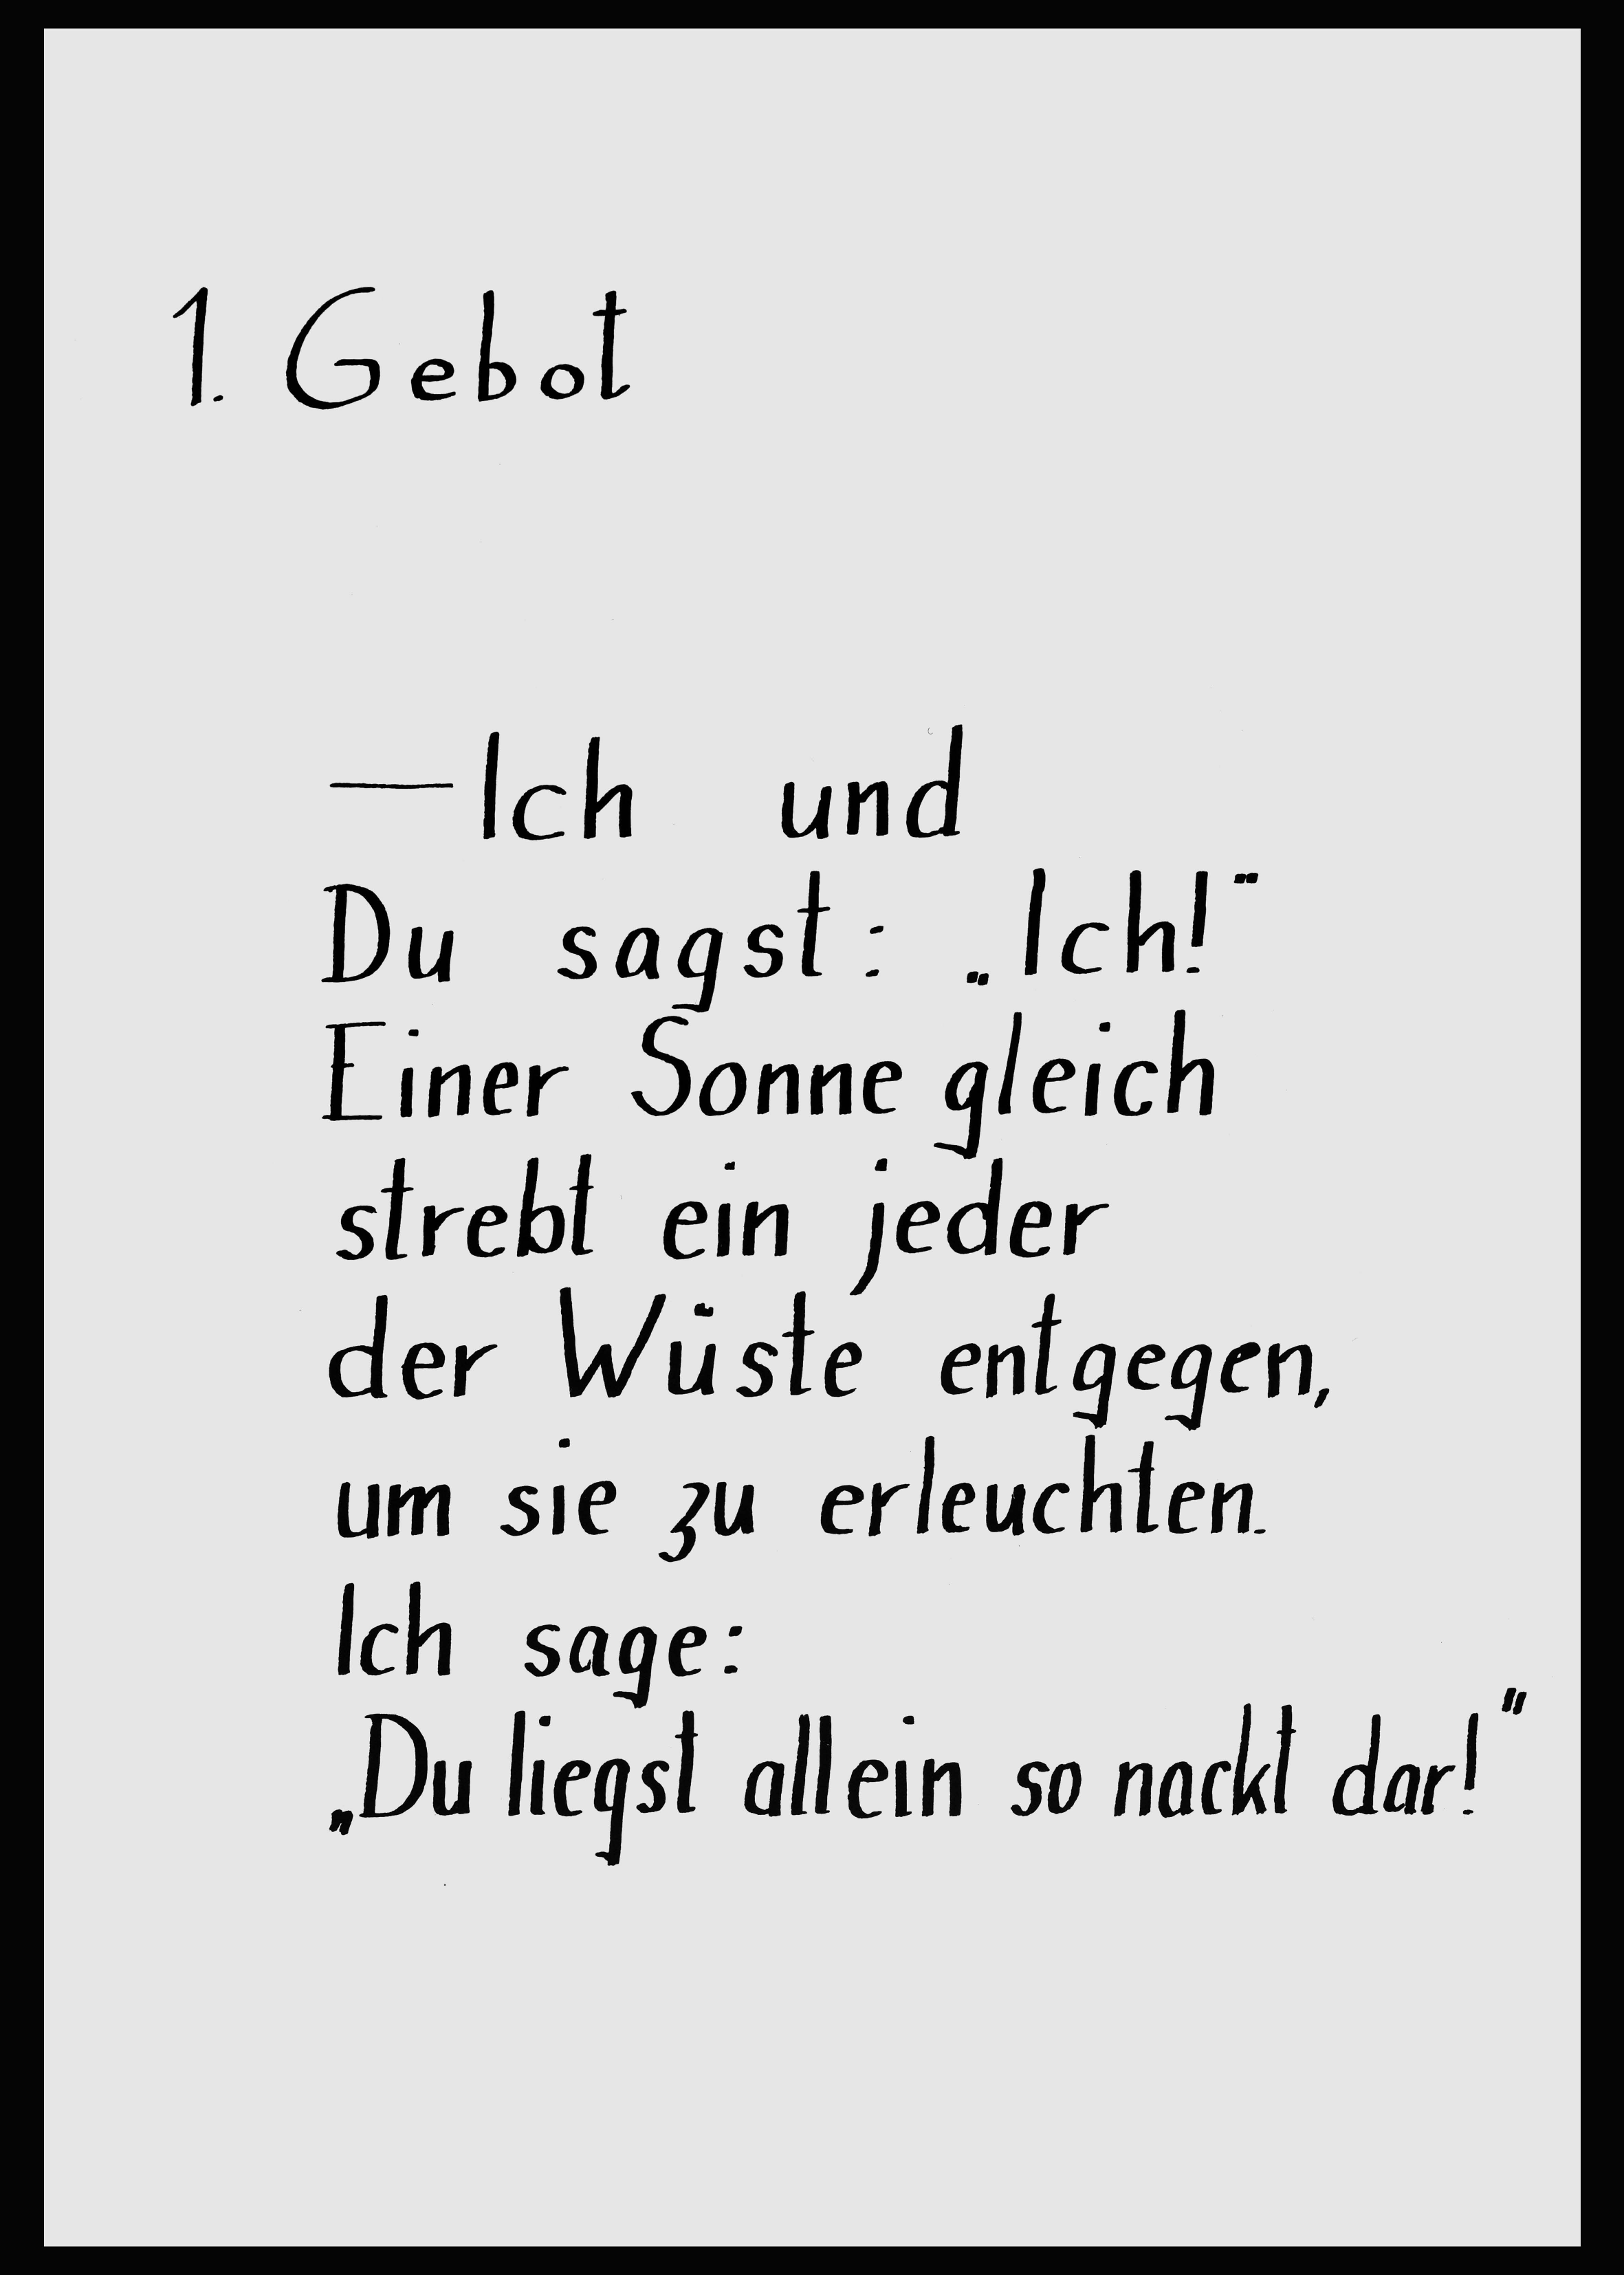 1. Gebot
— Ich und
Du sagst: „Ich!“
Einer Sonne gleich
strebt ein jeder
der Wüste entgegen,
um sie zu erleuchten.
Ich sage:
„Du liegst allein so nackt dar!“